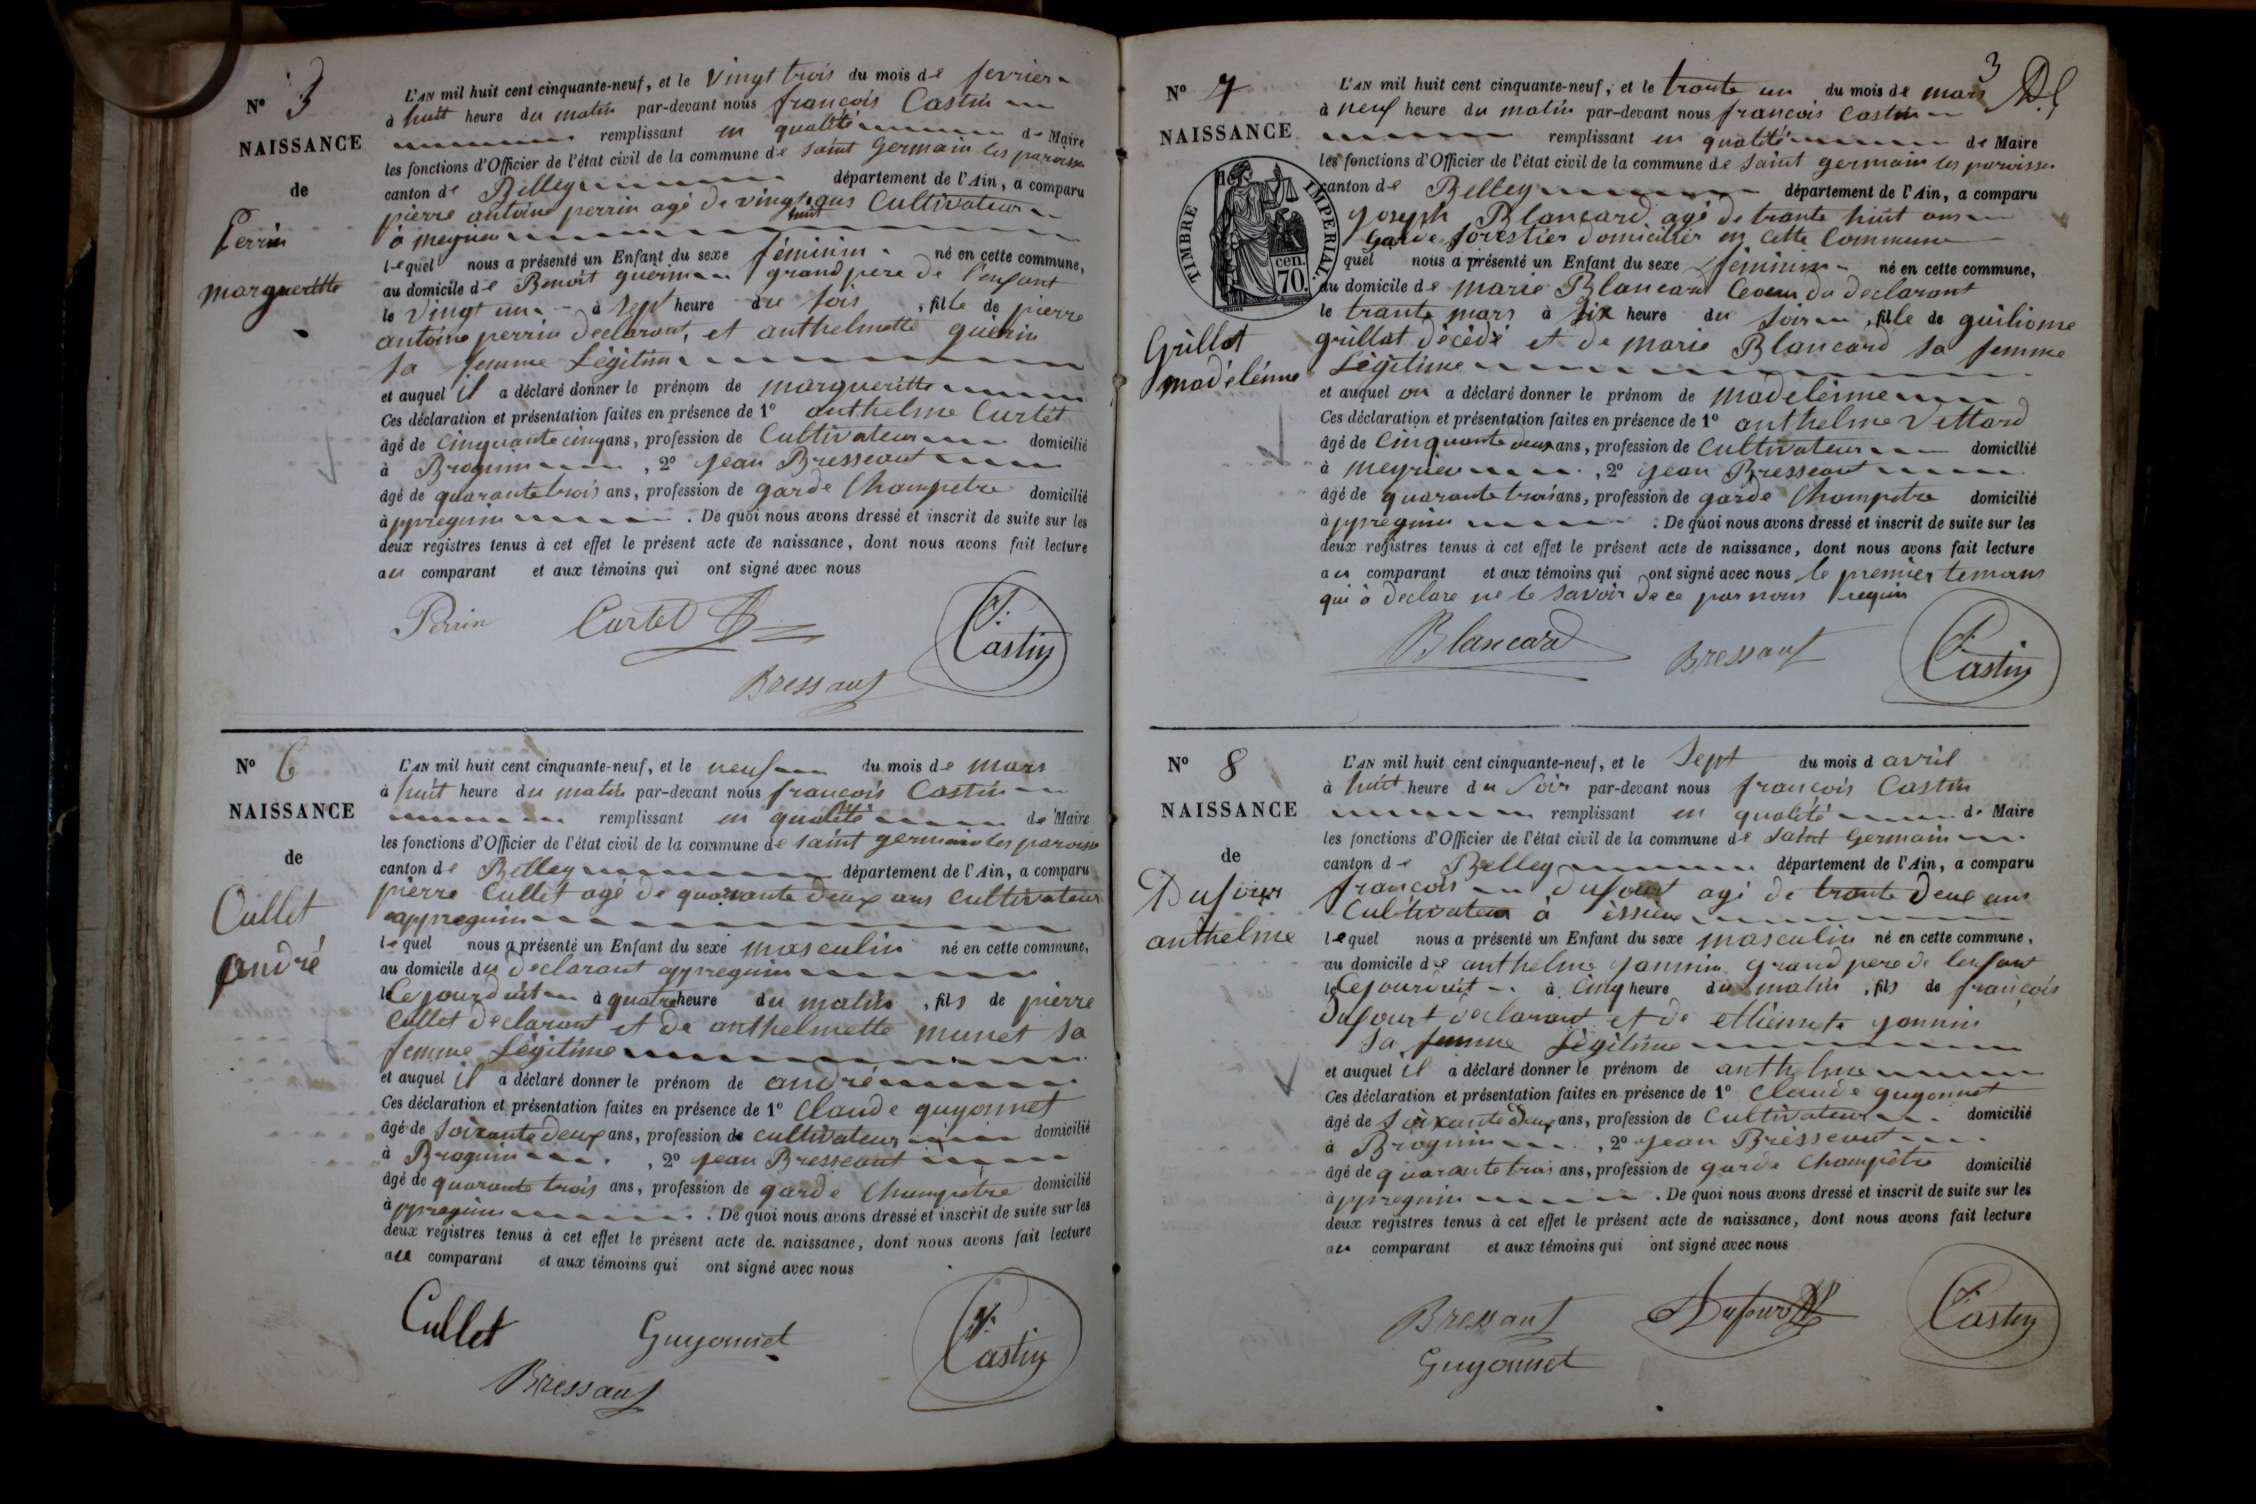 N° 5
NAISSANCE
de
Perrin
margueritte
L'AN mil huit cent cinquante-neuf, et le Vingt trois du mois de fevrier
à huit heure du matin par-devant nous françois Castin
remplissant en qualité de Maire
les fonctions d'Officier de l'état civil de la commune de Saint Germain les paroisse
canton de Belley département de l'Ain, a comparu
pierre antoine perrin agé de vingt huit ans Cultivateur
à meyrieu
lequel nous a présenté un Enfant du sexe féminin né en cette commune,
au domicile de Benoit guerin grand pere de l'enfant
le Vingt un à sept heure du soir, fille de pierre
antoine perrin declarant, et anthelmette guérin
sa femme Légitime
et auquel il a déclaré donner le prénom de margueritte
Ces déclaration et présentation faites en présence de 1° anthelme Curtet
âgé de Cinquante cinq ans, profession de Cultivateur domicilié
à Brognin, 2° jean Bresseaut
âgé de quarante trois ans, profession de garde Champetre domicilié
à ppregnin. De quoi nous avons dressé et inscrit de suite sur les
deux registres tenus à cet effet le présent acte de naissance, dont nous avons fait lecture
au comparant et aux témoins qui ont signé avec nous
Perrin Curtet
f. Castin
Bressaut
N° 6
NAISSANCE
de
Cullet
André
L'AN mil huit cent cinquante-neuf, et le neuf du mois de mars
à huit heure du matin par-devant nous françois Castin
remplissant en qualité de Maire
les fonctions d'Officier de l'état civil de la commune de saint germain les paroisse
canton de Belley département de l'Ain, a comparu
pierre Cullet agé de quarante deux ans cultivateur
appregnin
lequel nous a présenté un Enfant du sexe masculin né en cette commune,
au domicile du declarant appregnin
le Cejourduit à quatre heure du matin, fils de pierre
Cullet declarant et de anthelmette munet sa
femme Légitime
et auquel il a déclaré donner le prénom de andré
Ces déclaration et présentation faites en présence de 1° Claude guyonnet
âgé de soixante deux ans, profession de cultivateur domicilié
à Brognin, 2° jean Bresseaut
âgé de quarante trois ans, profession de garde Champetre domicilié
à ppregnin. De quoi nous avons dressé et inscrit de suite sur les
deux registres tenus à cet effet le présent acte de naissance, dont nous avons fait lecture
au comparant et aux témoins qui ont signé avec nous
Cullet Guyonnet
f. Castin
Bressaut
3
N° 7
NAISSANCE
de
TIMBRE IMPERIAL.
cen.
70.
Grillot
madeleinne
L'AN mil huit cent cinquante-neuf, et le trante un du mois de mars
à neuf heure du matin par-devant nous françois Castin
remplissant en qualité de Maire
les fonctions d'Officier de l'état civil de la commune de Saint germain les paroisse
canton de Belley département de l'Ain, a comparu
joseph Blancard agé de trante huit ans
garde forestier domicilier en cette Commune
quel nous a présenté un Enfant du sexe feminin né en cette commune,
au domicile de marie Blancard Ceoeur du declarant
le trante mars à six heure du soir, fille de guiliome
grillat décédé et de marie Blancard sa femme
Légitime
et auquel on a déclaré donner le prénom de madeleinne
Ces déclaration et présentation faites en présence de 1° anthelme Vettard
âgé de Cinquante deux ans, profession de Cultivateur domicilié
à meyrieu, 2° jean Bresseaut
âgé de quarante trois ans, profession de garde Champetre domicilié
à ppregnin. De quoi nous avons dressé et inscrit de suite sur les
deux registres tenus à cet effet le présent acte de naissance, dont nous avons fait lecture
au comparant et aux témoins qui ont signé avec nous le premier temoins
qui à declare ne le savoir de ce par nous requin
Blancard Bressaut
f. Castin
N° 8
NAISSANCE
de
Dufour
anthelme
L'AN mil huit cent cinquante-neuf, et le Sept du mois d avril
à huit heure du Soir par-devant nous françois Castin
remplissant en qualité de Maire
les fonctions d'Officier de l'état civil de la commune de Saint Germain
canton de Belley département de l'Ain, a comparu
françois dufourt agé de trante deux ans
Cultivateur à éssieux
lequel nous a présenté un Enfant du sexe masculin né en cette commune,
au domicile de anthelme jannin grand pere de lenfant
le Cejourduit à Cinq heure du matin, fils de françois
Dufourt declarant et de ettiennete jannin
sa femme Légitime
et auquel il a déclaré donner le prénom de anthelme
Ces déclaration et présentation faites en présence de 1° Claude guyonnet
âgé de Soixante deux ans, profession de Cultivateur domicilié
à Brognin, 2° jean Bresseaut
âgé de quarante trois ans, profession de garde Champêtre domicilié
à ppregnin. De quoi nous avons dressé et inscrit de suite sur les
deux registres tenus à cet effet le présent acte de naissance, dont nous avons fait lecture
au comparant et aux témoins qui ont signé avec nous
Bressaut Dufour
f. Castin
Guyonnet